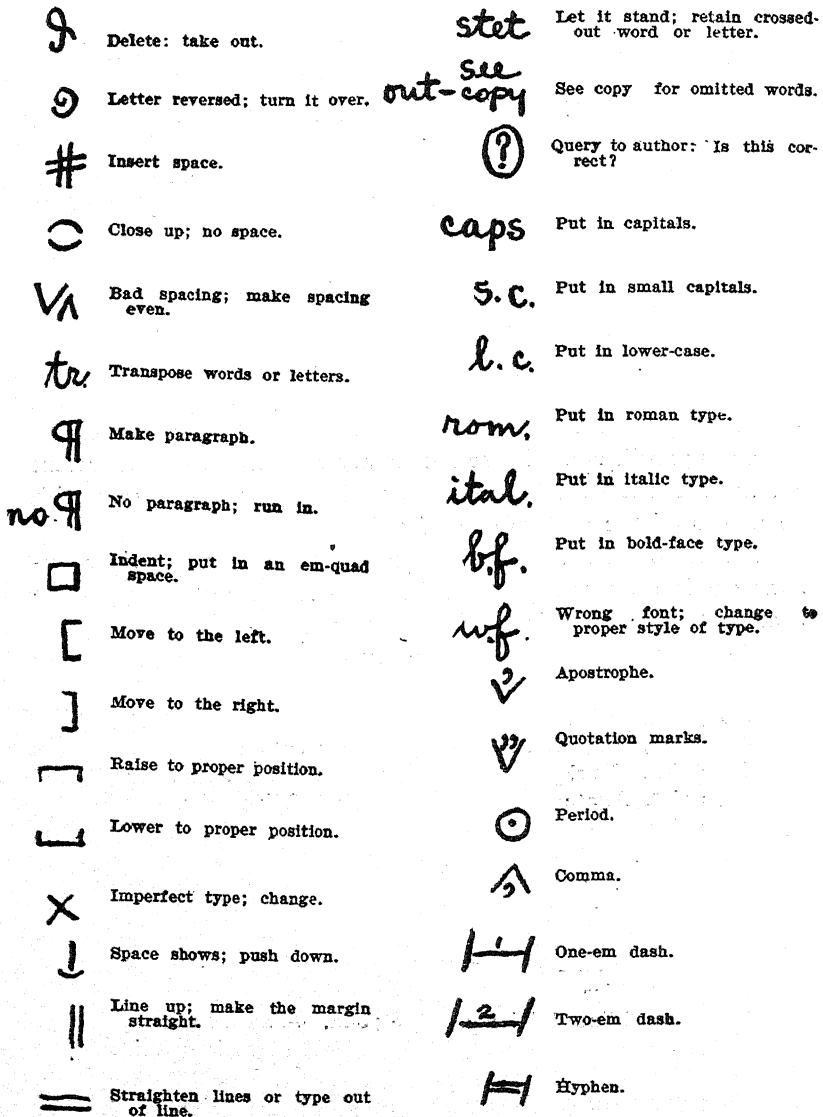 Delete: take out.
Letter reversed; turn it over.
# Insert space.
Close up; no space.
Bad spacing; make spacing
even.
tr. Transpose words or letters.
¶ Make paragraph.
no ¶ No paragraph; run in.
Indent; put in an em-quad
space.
[ Move to the left.
] Move to the right.
Raise to proper position.
Lower to proper position.
X Imperfect type; change.
Space shows; push down.
|| Line up; make the margin
straight.
Straighten lines or type out
of line.
stet Let it stand; retain crossed-
out word or letter.
see
out-copy See copy for omitted words.
? Query to author: Is this cor-
rect?
caps Put in capitals.
s.c. Put in small capitals.
l.c. Put in lower-case.
rom. Put in roman type.
ital. Put in italic type.
b.f. Put in bold-face type.
w.f. Wrong font; change to
proper style of type.
Apostrophe.
Quotation marks.
Period.
Comma.
1 One-em dash.
2 Two-em dash.
Hyphen.